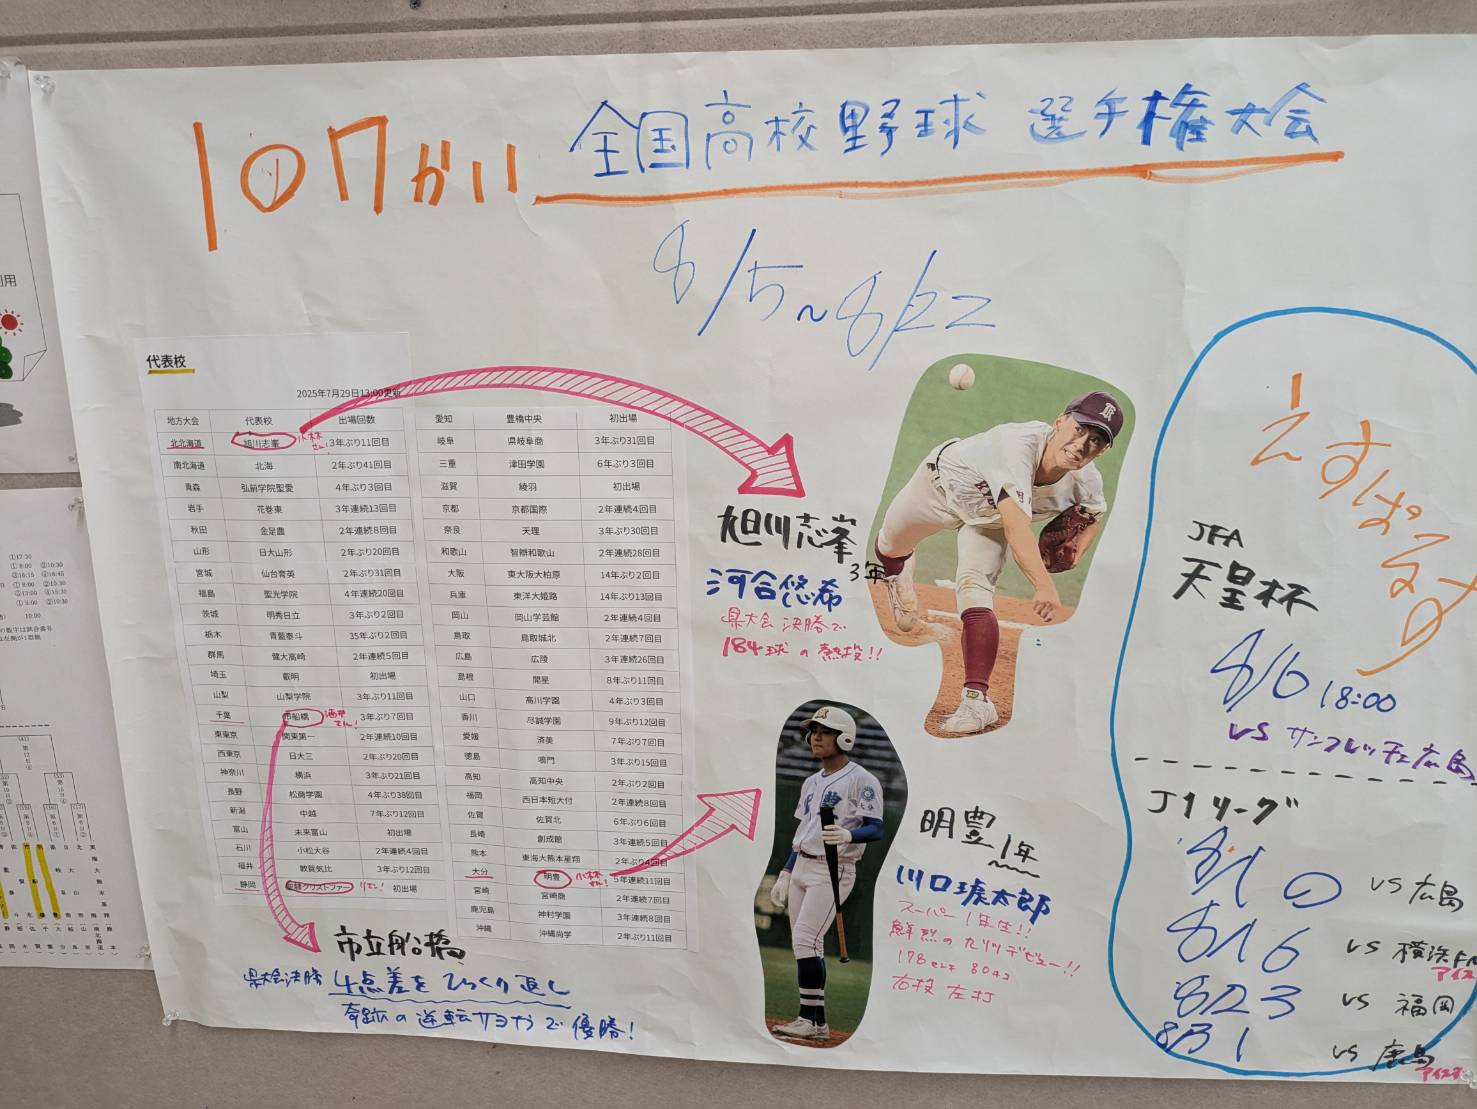 107かい 全国高校野球 選手権大会
8/5~8/22
代表校
2025年7月29日13:00更新
地方大会 代表校 出場回数
北北海道 旭川志峯 小林さん! 3年ぶり11回目
南北海道 北海 2年ぶり41回目
青森 弘前学院聖愛 4年ぶり3回目
岩手 花巻東 3年連続13回目
秋田 金足農 2年連続8回目
山形 日大山形 2年ぶり20回目
宮城 仙台育英 2年ぶり31回目
福島 聖光学院 4年連続20回目
茨城 明秀日立 3年ぶり2回目
栃木 青藍泰斗 35年ぶり2回目
群馬 健大高崎 2年連続5回目
埼玉 叡明 初出場
山梨 山梨学院 3年ぶり11回目
千葉 市船橋 酒井さん! 3年ぶり7回目
東東京 関東第一 2年連続10回目
西東京 日大三 2年ぶり20回目
神奈川 横浜 3年ぶり21回目
長野 松商学園 4年ぶり38回目
新潟 中越 7年ぶり12回目
富山 未来富山 初出場
石川 小松大谷 2年連続4回目
福井 敦賀気比 3年ぶり12回目
静岡 聖隷クリストファー 初出場
愛知 豊橋中央 初出場
岐阜 県岐阜商 3年ぶり31回目
三重 津田学園 6年ぶり3回目
滋賀 綾羽 初出場
京都 京都国際 2年連続4回目
奈良 天理 3年ぶり30回目
和歌山 智辯和歌山 2年連続28回目
大阪 東大阪大柏原 14年ぶり2回目
兵庫 東洋大姫路 14年ぶり13回目
岡山 岡山学芸館 2年連続4回目
鳥取 鳥取城北 2年連続7回目
広島 広陵 3年連続26回目
島根 開星 8年ぶり11回目
山口 高川学園 4年ぶり3回目
香川 尽誠学園 9年ぶり12回目
愛媛 済美 7年ぶり7回目
徳島 鳴門 3年ぶり15回目
高知 高知中央 2年ぶり2回目
福岡 西日本短大付 2年連続8回目
佐賀 佐賀北 6年ぶり6回目
長崎 創成館 3年連続5回目
熊本 東海大熊本星翔 2年ぶり4回目
大分 明豊 小林さん! 5年連続11回目
宮崎 宮崎商 2年連続7回目
鹿児島 神村学園 3年連続8回目
沖縄 沖縄尚学 2年ぶり11回目
旭川志峯
3年
河合悠希
県大会 決勝で
184球の熱投!!
明豊 1年
川口琥太郎
スーパー1年生!!
鮮烈の九州デビュー!!
178センチ 80キロ
右投 左打
市立船橋
県大会決勝 4点差をひっくり返し
奇跡の逆転サヨナラで優勝!
えすぱるす
JFA
天皇杯
8/6 18:00
VS サンフレッチェ広島
J1リーグ
8/10 VS 広島
8/16 VS 横浜FM
823 VS 福岡
8/31 VS 鹿島